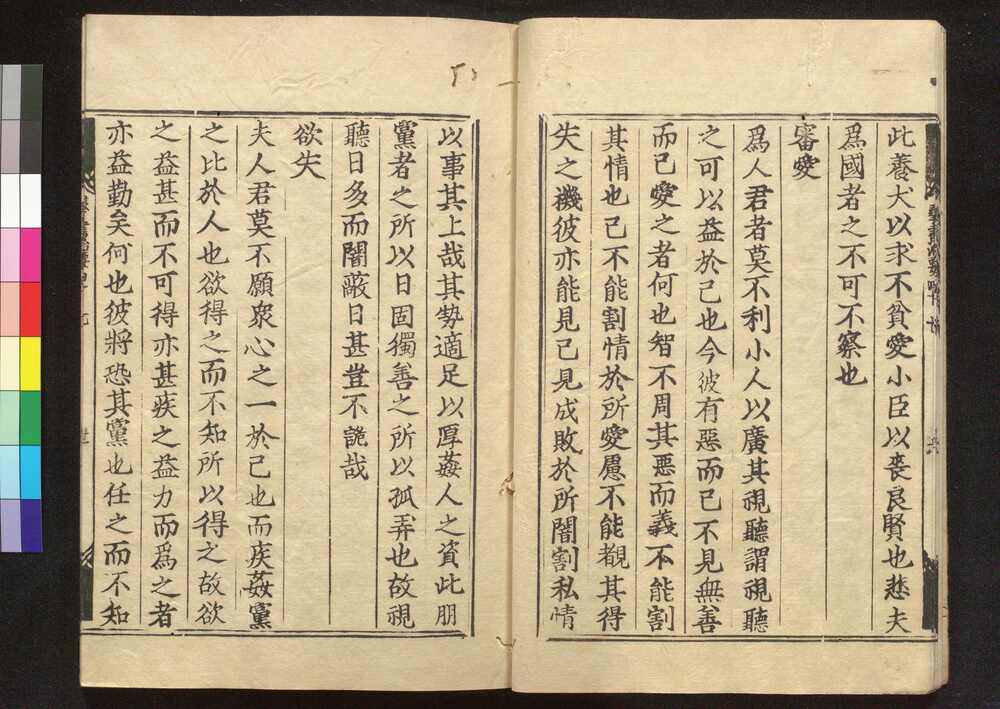 此養犬以求不貧愛小臣以喪良賢也悲夫
爲國者之不可不察也
審愛
爲人君者莫不利小人以廣其視聽謂視聽
之可以益於己也今彼有惡而己不見無善
而己愛之者何也智不周其惡而義不能割
其情也己不能割情於所愛慮不能覩其得
失之機彼亦能見己見成敗於所闇割私情
以事其上哉其勢適足以厚姦人之資此朋
黨者之所以日固獨善之所以孤弄也故視
聽日多而闇蔽日甚豈不詭哉
欲失
夫人君莫不願衆心之一於己也而疾姦黨
之比於人也欲得之而不知所以得之故欲
之益甚而不可得亦甚疾之益力而爲之者
亦益勤矣何也彼將恐其黨也任之而不知